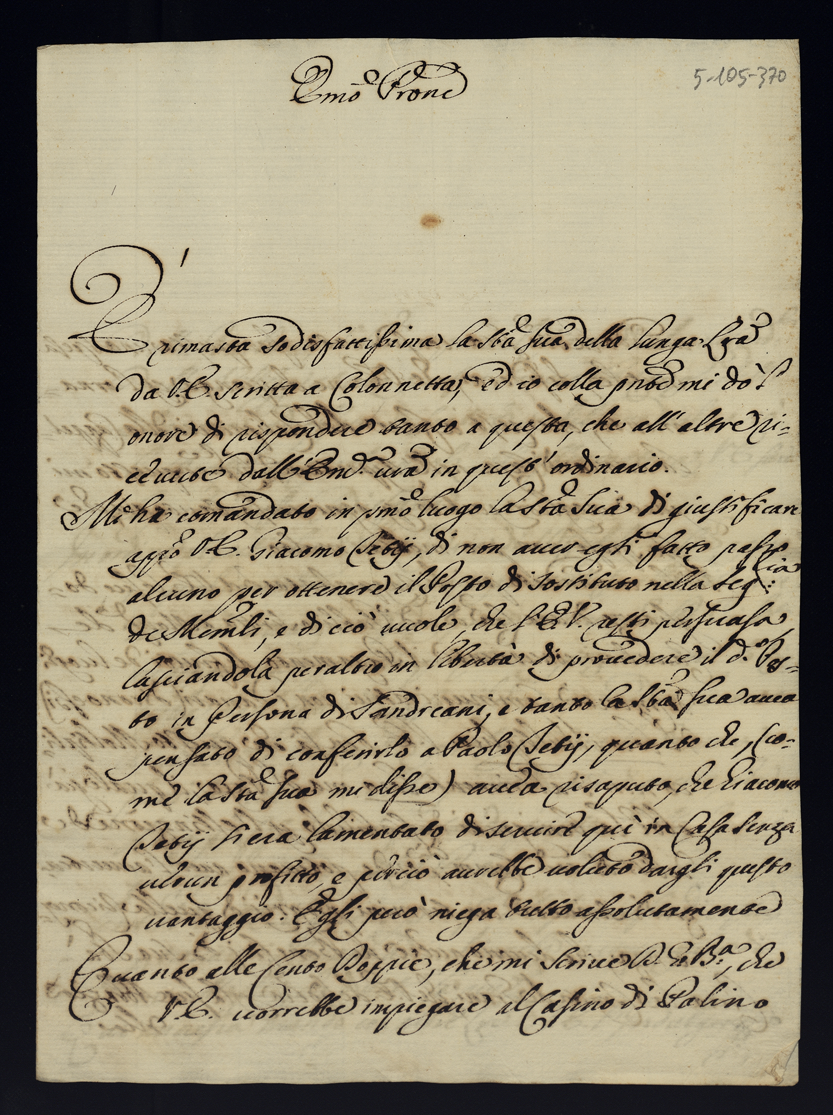 5-105-370
Emo Prone
È rimasta sodisfattissima la Stà Sua della lunga Lrã
da V.E. scritta a Colonnetta, ed io colla pnte mi dò l'
onore di rispondere tanto a questa, che all'altre ri-
cevute dall'Emã vrã in quest'ordinario.
Mi ha comandato in pmo luogo la Stà Sua di giustificare
appo V.E. Giacomo Jebij, di non aver egli fatto passo
alcuno per ottenere il Posto di Sostituto nella Segria
de Memli, e di ciò vuole che l'E.V. resti persuasa,
lasciandola peraltro in libertà di provedere il do Pos-
to in Persona di Sandreani, e tanto la Stà Sua avea
pensato di conferirlo a Paolo Jebij, quanto che, (co-
me la Stà Sua mi disse) avea risaputo, che Giacomo
Jebij si era lamentato di servire quì in Casa senza
alcun profitto, e perciò avrebbe voluto dargli questo
vantaggio. Egli però niega tutto assolutamente
Quanto alle Cento Doppie, che mi scrive D. Bã, che
V.E. vorrebbe impiegare al Casino di Palino